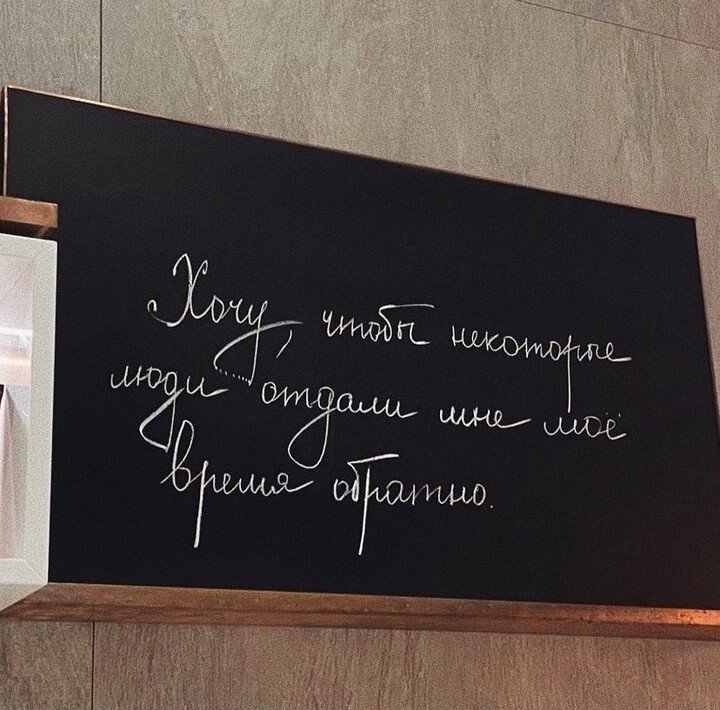 Хочу, чтобы некоторые
люди отдали мне моё
время обратно.